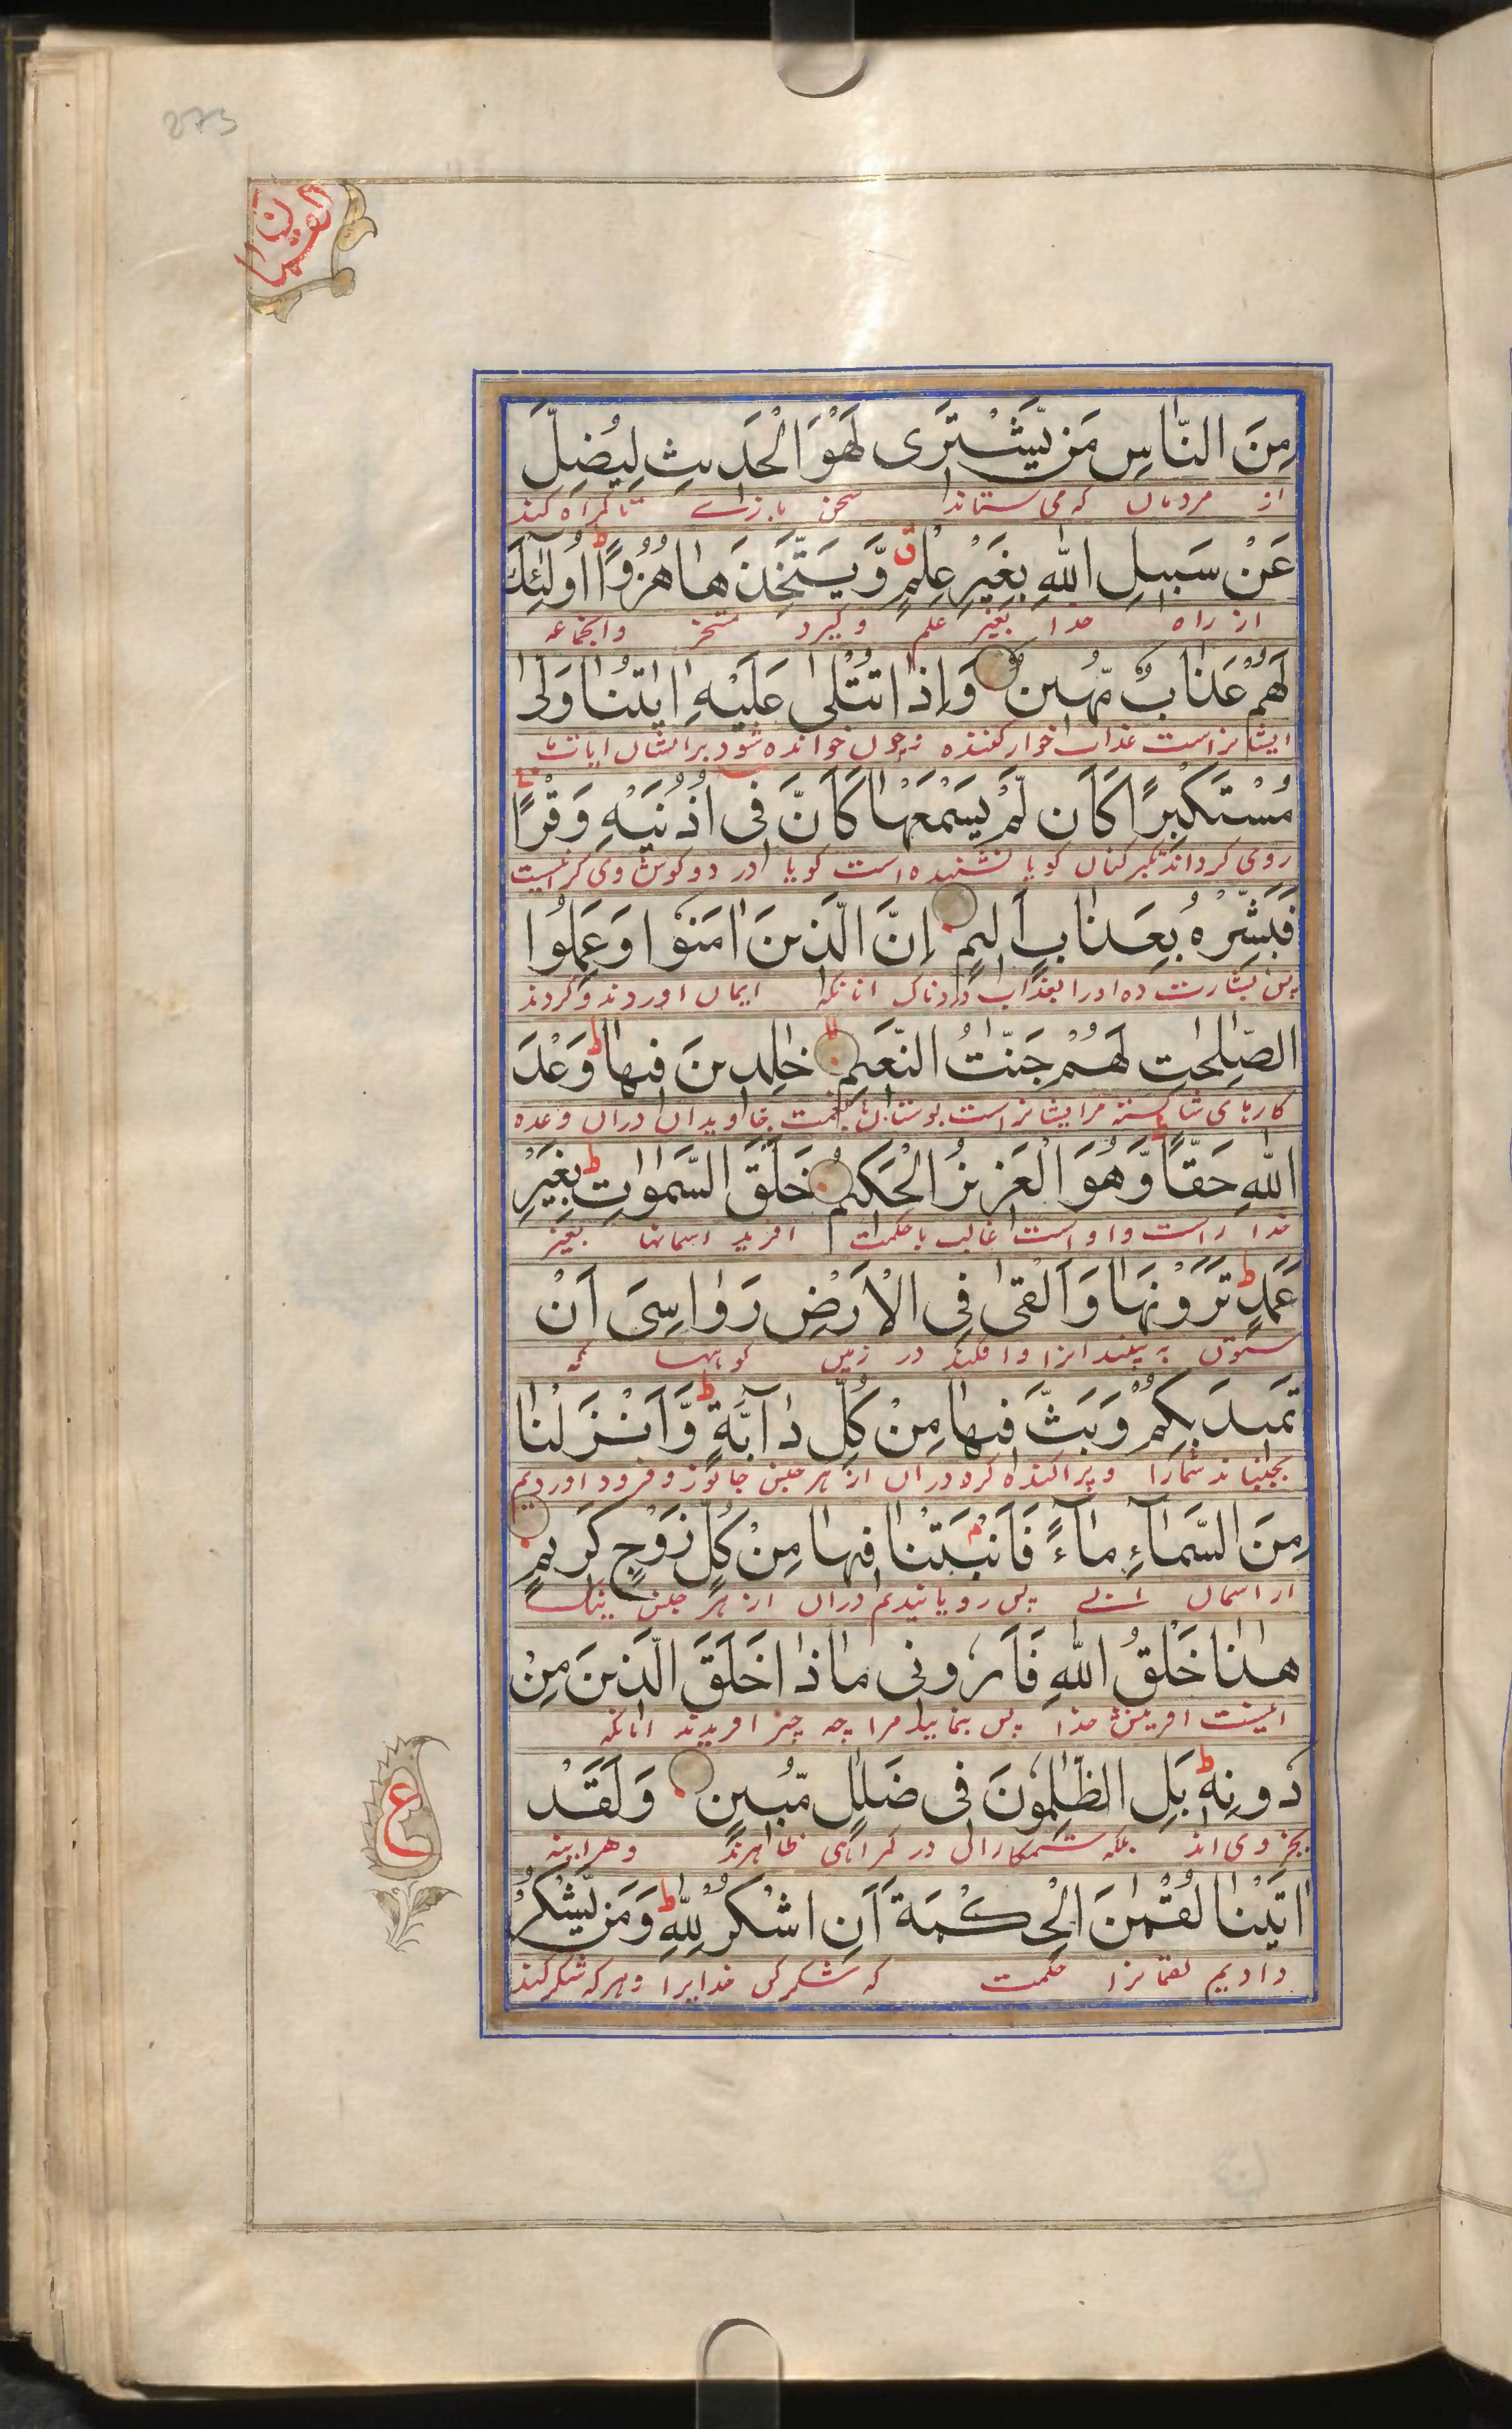 273
لقمان
مِنَ النَّاسِ مَنْ يَّشْتَرِى لَهْوَ الْحَدِيثِ لِيُضِلَّ
از مردمان که می ستاند سخن بازے تا گمراه کند
عَنْ سَبِيلِ اللهِ بِغَيْرِ عِلْمٍ ق وَّيَتَّخِذَهَا هُزُوًا ط اُولٰئِكَ
از راه خدا بغیر علم و گیرد واجماعه
لَهُمْ عَذَابٌ مُّهِينٌ وَاِذَا تُتْلٰى عَلَيْهِ اٰيٰتُنَا وَلّٰى
ایشانراست عذاب خوار کننده و چون خوانده شود بر ایشان ایات ما
مُسْتَكْبِرًا كَاَنْ لَّمْ يَسْمَعْهَا كَاَنَّ فِى اُذُنَيْهِ وَقْرًا
روی گرداند تکبر کنان گویا نشنیده است گویا در دو گوش وی گرانیست
فَبَشِّرْهُ بِعَذَابٍ اَلِيمٍ اِنَّ الَّذِينَ اٰمَنُوا وَعَمِلُوا
پس بشارت ده او را بعذاب دردناک انانکه ایمان اوردند و کردند
الصّٰلِحٰتِ لَهُمْ جَنّٰتُ النَّعِيمِ لا خٰلِدِينَ فِيهَا ط وَعْدَ
کارهای شایسته مر ایشانراست بوستان نعمت جاویدان دران وعده
اللهِ حَقًّا ط وَّهُوَ الْعَزِيزُ الْحَكِيمُ خَلَقَ السَّمٰوٰتِ ط بِغَيْرِ
خدا راست و او است غالب با حکمت افرید اسمانها بغیر
عَمَدٍ ط تَرَوْنَهَا وَاَلْقٰى فِى الْاَرْضِ رَوَاسِىَ اَنْ
ستون به بینند انرا و افکند در زمین کوهها که
تَمِيدَ بِكُمْ وَبَثَّ فِيهَا مِنْ كُلِّ دَآبَّةٍ ط وَّاَنْزَلْنَا
بجنباند شمارا و پراکنده کرد دران از هر جنس جانور و فرود اوردیم
مِنَ السَّمَآءِ مَآءً فَاَنْبَتْنَا فِيهَا مِنْ كُلِّ زَوْجٍ كَرِيمٍ
از اسمان ابے پس رویانیدیم دران از هر جنس نیک
هٰذَا خَلْقُ اللهِ فَاَرُونِى مَاذَا خَلَقَ الَّذِينَ مِنْ
اینست افرینش خدا پس بنمایید مرا چه چیز افریدند انانکه
دُونِهٖ ط بَلِ الظّٰلِمُونَ فِى ضَلٰلٍ مُّبِينٍ وَلَقَدْ
بجز وی اند بلکه ستمکاران در گمراهی ظاهرند و هراینه
اٰتَيْنَا لُقْمٰنَ الْحِكْمَةَ اَنِ اشْكُرْ لِلّٰهِ ط وَمَنْ يَّشْكُرْ
دادیم لقمانرا حکمت که شکر کن خدایرا و هر که شکر کند
ع